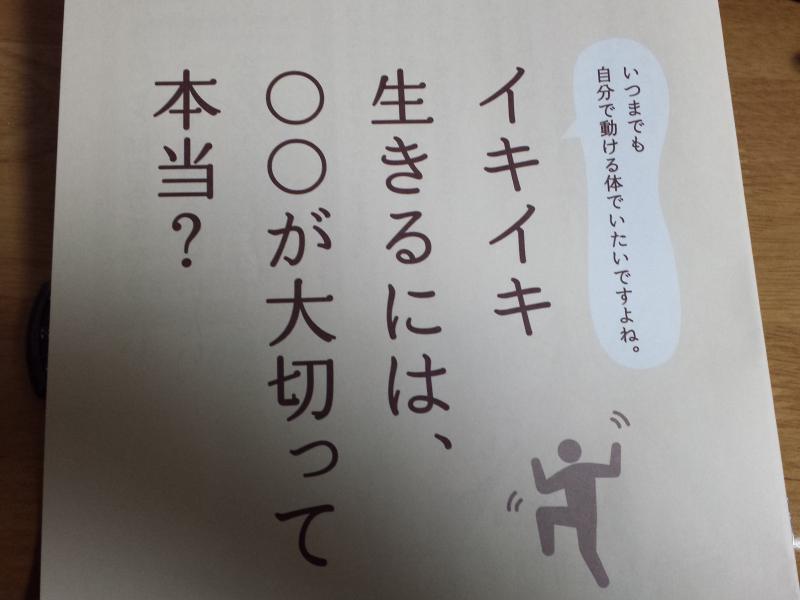 いつまでも
自分で動ける体でいたいですよね。
イキイキ
生きるには、
○○が大切って
本当？